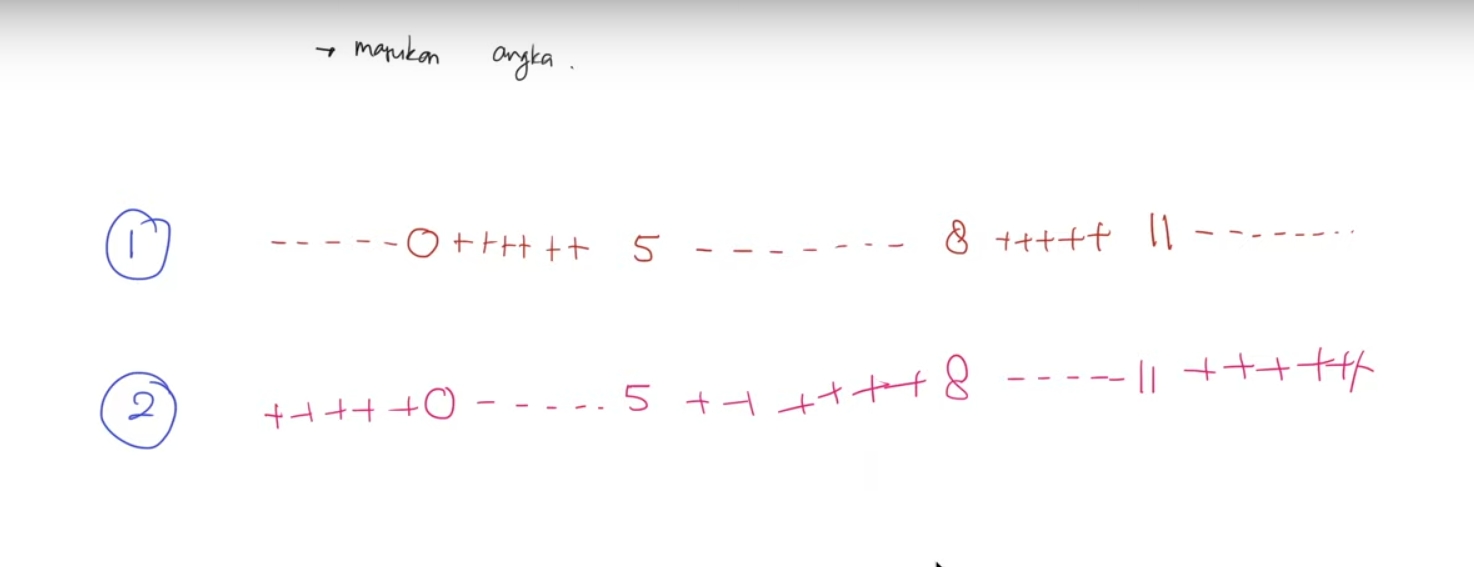 → masukan angka.
1 - - - - - - 0 + + + + + + 5 - - - - - - - - 8 + + + + + 11 - - - - - - - -
2 + + + + + 0 - - - - - - 5 + + + + + + 8 - - - - - 11 + + + + + +